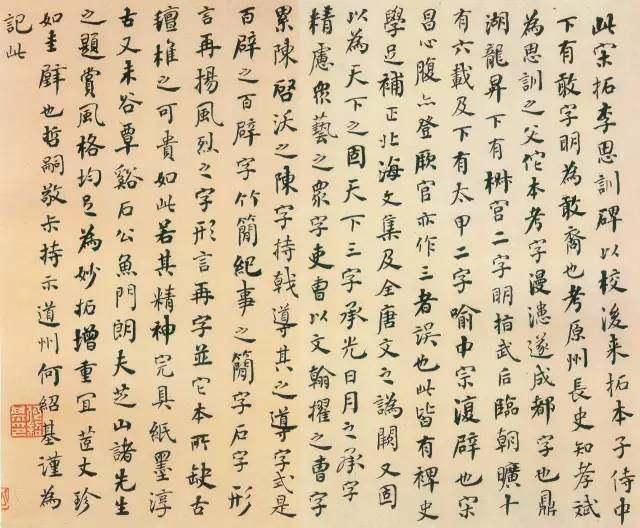 此宋拓李思訓碑以校後来拓本子侍中
下有敢字明為敢裔也考原州長史知孝斌
為思訓之父佗本考字漫漶遂成都字也鼎
湖龍昇下有桝宫二字明指武后臨朝曠十
有六載及下有太甲二字喻中宗復辟也宋
昌心腹亦登厥官亦作三者誤也此皆有裨史
學足補正北海文集及全唐文之譌闕又固
以為天下之固天下三字承光日月之承字
精慮衆藝之衆字吏曹以文翰擢之曹字
累陳啓沃之陳字持戟導其之導字式是
百辟之百辟字竹簡紀事之簡字石字形
言再揚風烈之字形言再字並它本所缺古
𣝔椎之可貴如此若其精神完具紙墨淳
古又未谷覃谿石公魚門朗夫芝山諸先生
之題賞風格均足為妙拓增重宜荁丈珍
如圭璧也哲嗣敬卡持示道州何紹基謹為
記此